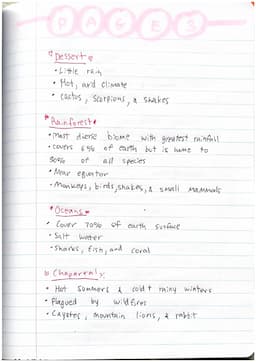 PAGES
Dessert
• Little rain
• Hot, arid climate
• Cactus, Scorpions, & snakes
Rainforest
• Most diverse biome with greatest rainfall
• covers 6% of earth but is home to
50% of all species
• Near equator
• Monkeys, birds, snakes, & small mammals
Oceans
• Cover 70% of earth surface
• Salt water
• Sharks, fish, and coral
Chaparral
• Hot summers & cold + rainy winters
• Plagued by wildfires
• Cayotes, mountain lions, & rabbit